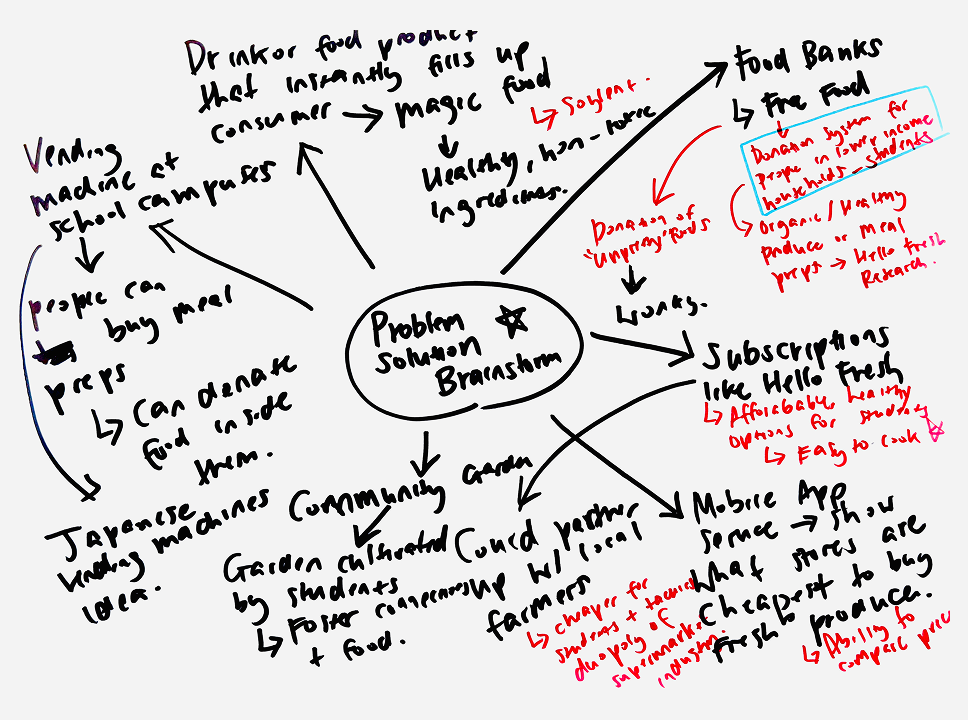 Drink or food product
that instantly fills up
consumer → magic food
↳ Soylent.
Healthy, non-toxic
ingredients.
Food Banks
↳ Free Food
Donation System for
people in lower income
households - students
↳ Organic/Healthy
produce or meal
preps → Hello Fresh
Research.
Donation of
"unpretty" foods
↳ wonky.
Vending
machine at
school campuses
people can
buy meal
preps
↳ Can donate
food inside
them.
Japanese
vending machines
idea.
Problem
solution
Brainstorm
Subscriptions
like Hello Fresh
↳ Affordable, healthy
options for students
↳ Easy to cook
Community Garden
Garden cultivated
by students
↳ Foster
+ food.
Could partner
w/ local
farmers
↳ cheaper for
students +
duopoly of
supermarket
industry.
Mobile App
service → show
what stores are
cheapest to buy
fresh produce.
↳ Ability to
compare price